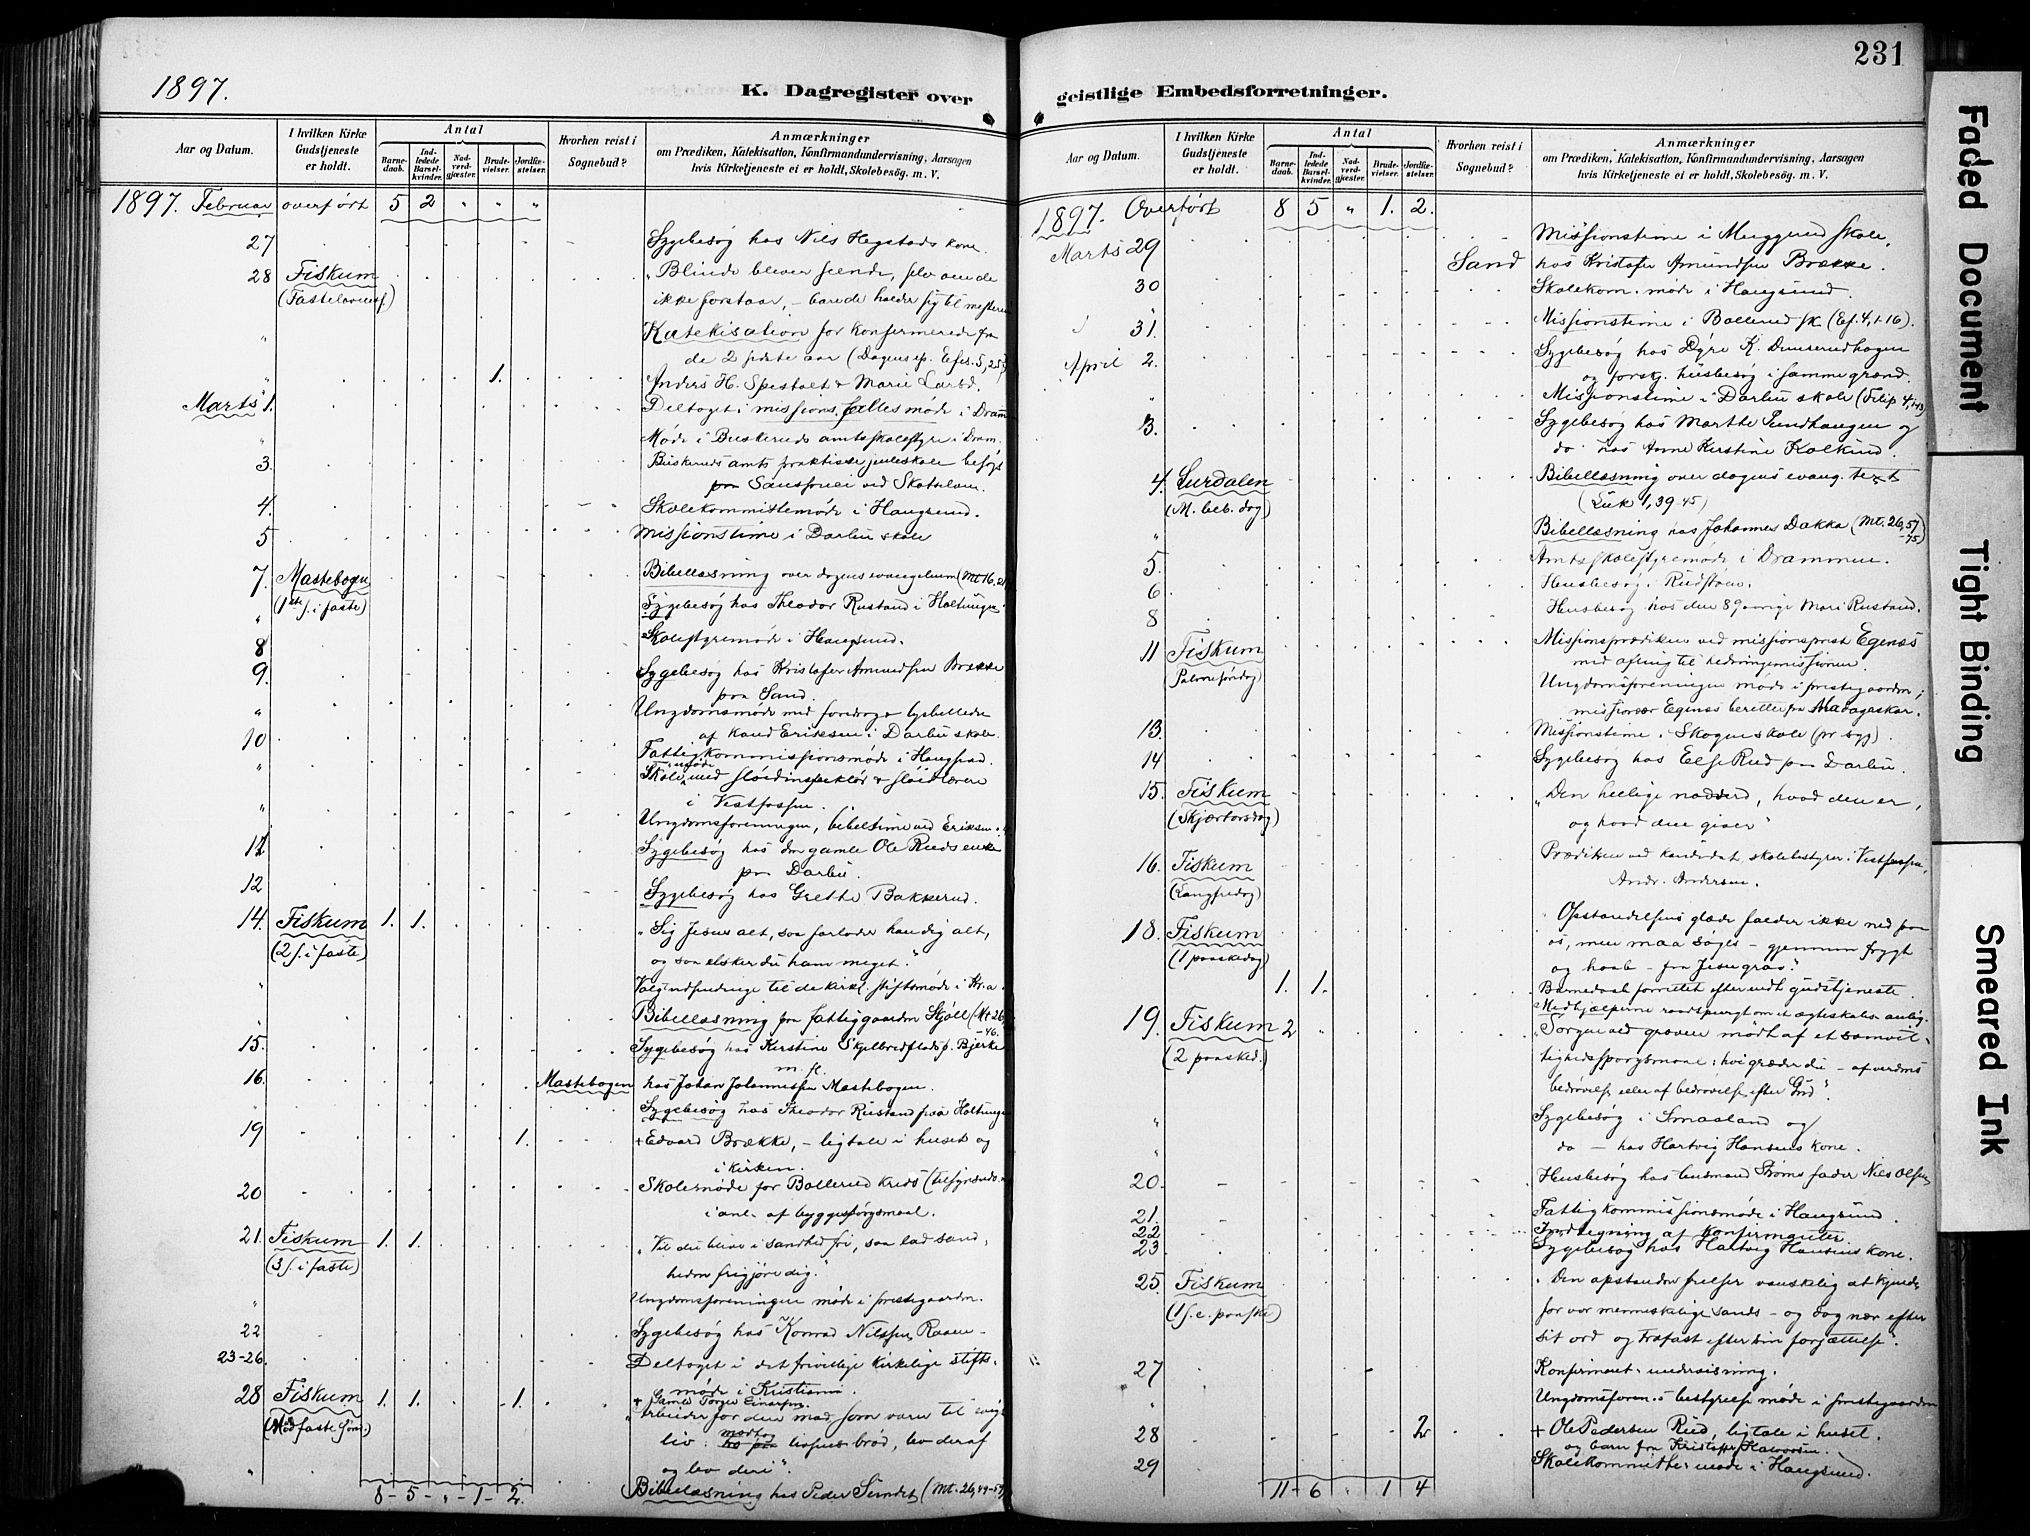 1897.
K. Dagregister over
Aar og Datum.
I hvilken Kirke Gudstjeneste er holdt.
Antal
Barnedaab.
Indledede Barselkvinder.
Nadverdgjæster.
Brudevielser.
Jordfæstelser.
Hvorhen reist i Sognebud?
Anmærkninger
om Prædiken, Katekisation, Konfirmandundervisning, Aarsagen
hvis Kirketjeneste ei er holdt, Skolebesøg. m. V.
1897. Februar overført 5 2 " " "
27 Sygebesøg hos Nils Hegstads kone.
28 Fiskum "Blinde bliver seende, selv om de
(Fastelavnsf) ikke forstaar, - bare de holder sig til mesteren
" Katekisation for konfirmerede fra
de 2 sidste aar (Dagens ep. Efes. 5, 25
" 1. Anders H. Spestolt & Marie Larsd.
Marts 1. Deltaget i missions fællesmøde i Dram
" Møde i Buskeruds amtsskolestyre i Dram.
3 Buskeruds amts praktiske juleskole besøgt
paa Sansprei ved Skotselven.
4. Skolekommittemøde i Haugsund.
5 Missionstime i Darbu skole
7. Mastebogen Bibellæsning over dagens evangelium (Mt 16. 21
(1ste s. i faste)
" Sygebesøg hos Theodor Rustand i Holtungen
8 Skolestyremøde i Haugsund.
9. Sygebesøg hos Kristofer Amundsen Brække
paa Sand.
" Ungdomsmøde med foredrag & lysbilleder
af kand Eriksen i Darbu skole.
10 Fattigkommissionsmøde i Haugsund.
" Skolemøde med sløidinspektør & sløidlærere
i Vestfossen.
" Ungdomsforeningen, bibeltime ved Eriksen.
12 Sygebesøg hos den gamle Ole Ruds enke
paa Darbu.
12 Sygebesøg hos Grethe Bakkerud.
14. Fiskum 1. 1. "Sig Jesus alt, saa forlader han dig alt,
(2 s. i faste) og saa elsker du ham meget."
" Valgmdsendinge til de kirkl. stiftsmøde i Kr.a.
" Bibellæsning paa fattiggaarden Skjøll (Mt 26
-46.
15. Sygebesøg hos Kirstine Skjelbredflads p. Bjerke
m. fl.
16. Mastebogen hos Johan Johannessen Mastebogen.
" Sygebesøg hos Theodor Rustand paa Holtungen
19 1. + Edvard Brække, - ligtale i huset og
i kirken.
20 Skolemøde for Bollerud kreds (tilsynsuds.
i anl. af byggespørgsmaal.
21. Fiskum 1. 1. "Vil du blive i sandhed fri, saa lad sand-
(3 s. i faste) heden frigjøre dig."
" Ungdomsforeningen møde i prestegaarden.
22 Sygebesøg hos Konrad Nilssen Raaen
23-26. Deltaget i det frivillige kirkelige stifts-
møde i Kristiania.
28 Fiskum 1. 1. 1. + Gamle Torger Einarsen.
(Midfaste sønd.) "Arbeider for den mad, som varer til evigt
liv: modtag livsens brød, lev deraf
og lev deri".
" Bibellæsning hos Peder Sundet (Mt. 26, 47-57)
8 - 5 - " - 1 - 2.
231
geistlige Embedsforretninger.
Aar og Datum.
I hvilken Kirke Gudstjeneste er holdt.
Antal
Barnedaab.
Indledede Barselkvinder.
Nadverdgjæster.
Brudevielser.
Jordfæstelser.
Hvorhen reist i Sognebud?
Anmærkninger
om Prædiken, Katekisation, Konfirmandundervisning, Aarsagen
hvis Kirketjeneste ei er holdt, Skolebesøg. m. V.
1897. Overført 8 5 " 1. 2.
Marts 29 Missionstime i Muggerud skole.
Sand hos Kristofer Amundsen Brække.
30 Skolekom. møde i Haugsund.
31. Missionstime i Bollerud sk (Ef. 4, 1-16).
April 2. Sygebesøg hos Dyre K. Dunserudhagen
og forskj. husbesøg i samme grænd.
" Missionstime i Darbu skole (Filip 4, 1-13)
3. Sygebesøg hos Marthe Sundhaugen og
do hos Anne Kirstine Kolkind.
4. Surdalen Bibellæsning over dagens evang. text
(M. beb. dag) (Luk 1, 39-45)
" Bibellæsning hos Johannes Dokka (Mt. 26, 57
-75)
5. Amtsskolestyremøde i Drammen.
6 Husbesøg i Rudstøen.
8 Husbesøg hos den 89 aarige Mari Rustand.
11 Fiskum Missionsprædiken ved missionsprest Egenæs
(Palmesøndag) med ofring til hedningemissionen.
Ungdomsforeningen møde i prestegaarden;
missionær Egenæs beretter fra Madagaskar.
13. Missionstime i Skogenskole (nr byg).
14 Sygebesøg hos Else Rud paa Darbu.
15. Fiskum "Den hellige nadverd, hvad den er,
(Skjærtorsdag) og hvad den giver"
16. Fiskum Prædiken ved kandidat, skolebestyrer i Vestfossen,
(Langfredag) Andr. Andersen.
18. Fiskum "Opstandelsens glæde falder ikke ned paa
(1 paaskedag) os, men maa søges - gjennem frygt
og haab - fra Jesu grav."
1. 1. Barnedaab forrettet efter endt gudstjeneste.
Medhjælperne raadspurgt om et ægteskabs anlig.
19. Fiskum 2 " "Sorgen ved graven mødt af et samvit-
(2 paasked.) tighedsspørgsmaal: hvi græder du - af verdens
bedrøvelse eller af bedrøvelse efter Gud".
" Sygebesøg i Smaaland og
" do - hos Hartvig Hansens kone.
20. Husbesøg hos lensmand Strøms fader Nils Olsen
21. Fattigkommissionsmøde i Haugsund.
22 Indtegning af konfirmanter
23 Sygebesøg hos Hartvig Hansens kone.
25. Fiskum "Den opstandne frelser vanskelig at kjende
(1 s. e. paaske) for vor menneskelige sands - og dog nær efter
sit ord og trofast efter sin forjættelse".
27 Konfirmant-undervisning.
" Ungdomsforen.s bestyrelse møde i prestegaarden
28 2 + Ole Pedersen Rud, ligtale i huset.
og barn fra Kristoffer Halvorsen.
29 Skolekommitte-møde i Haugsund.
11 - 6 " 1 4
Faded Document
Tight Binding
Smeared Ink